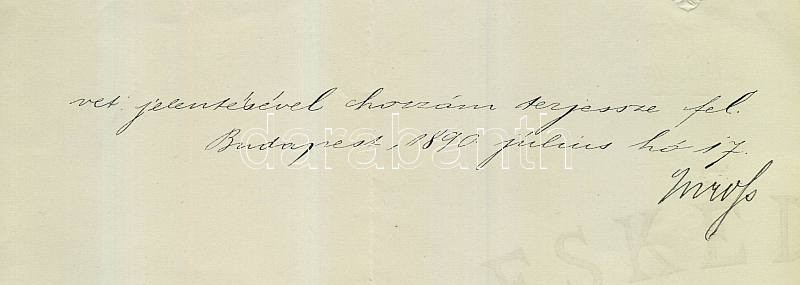 vet jelentésével hozzám terjessze fel.
Budapest, 1890 július hó 17.
darabanth
ESKED